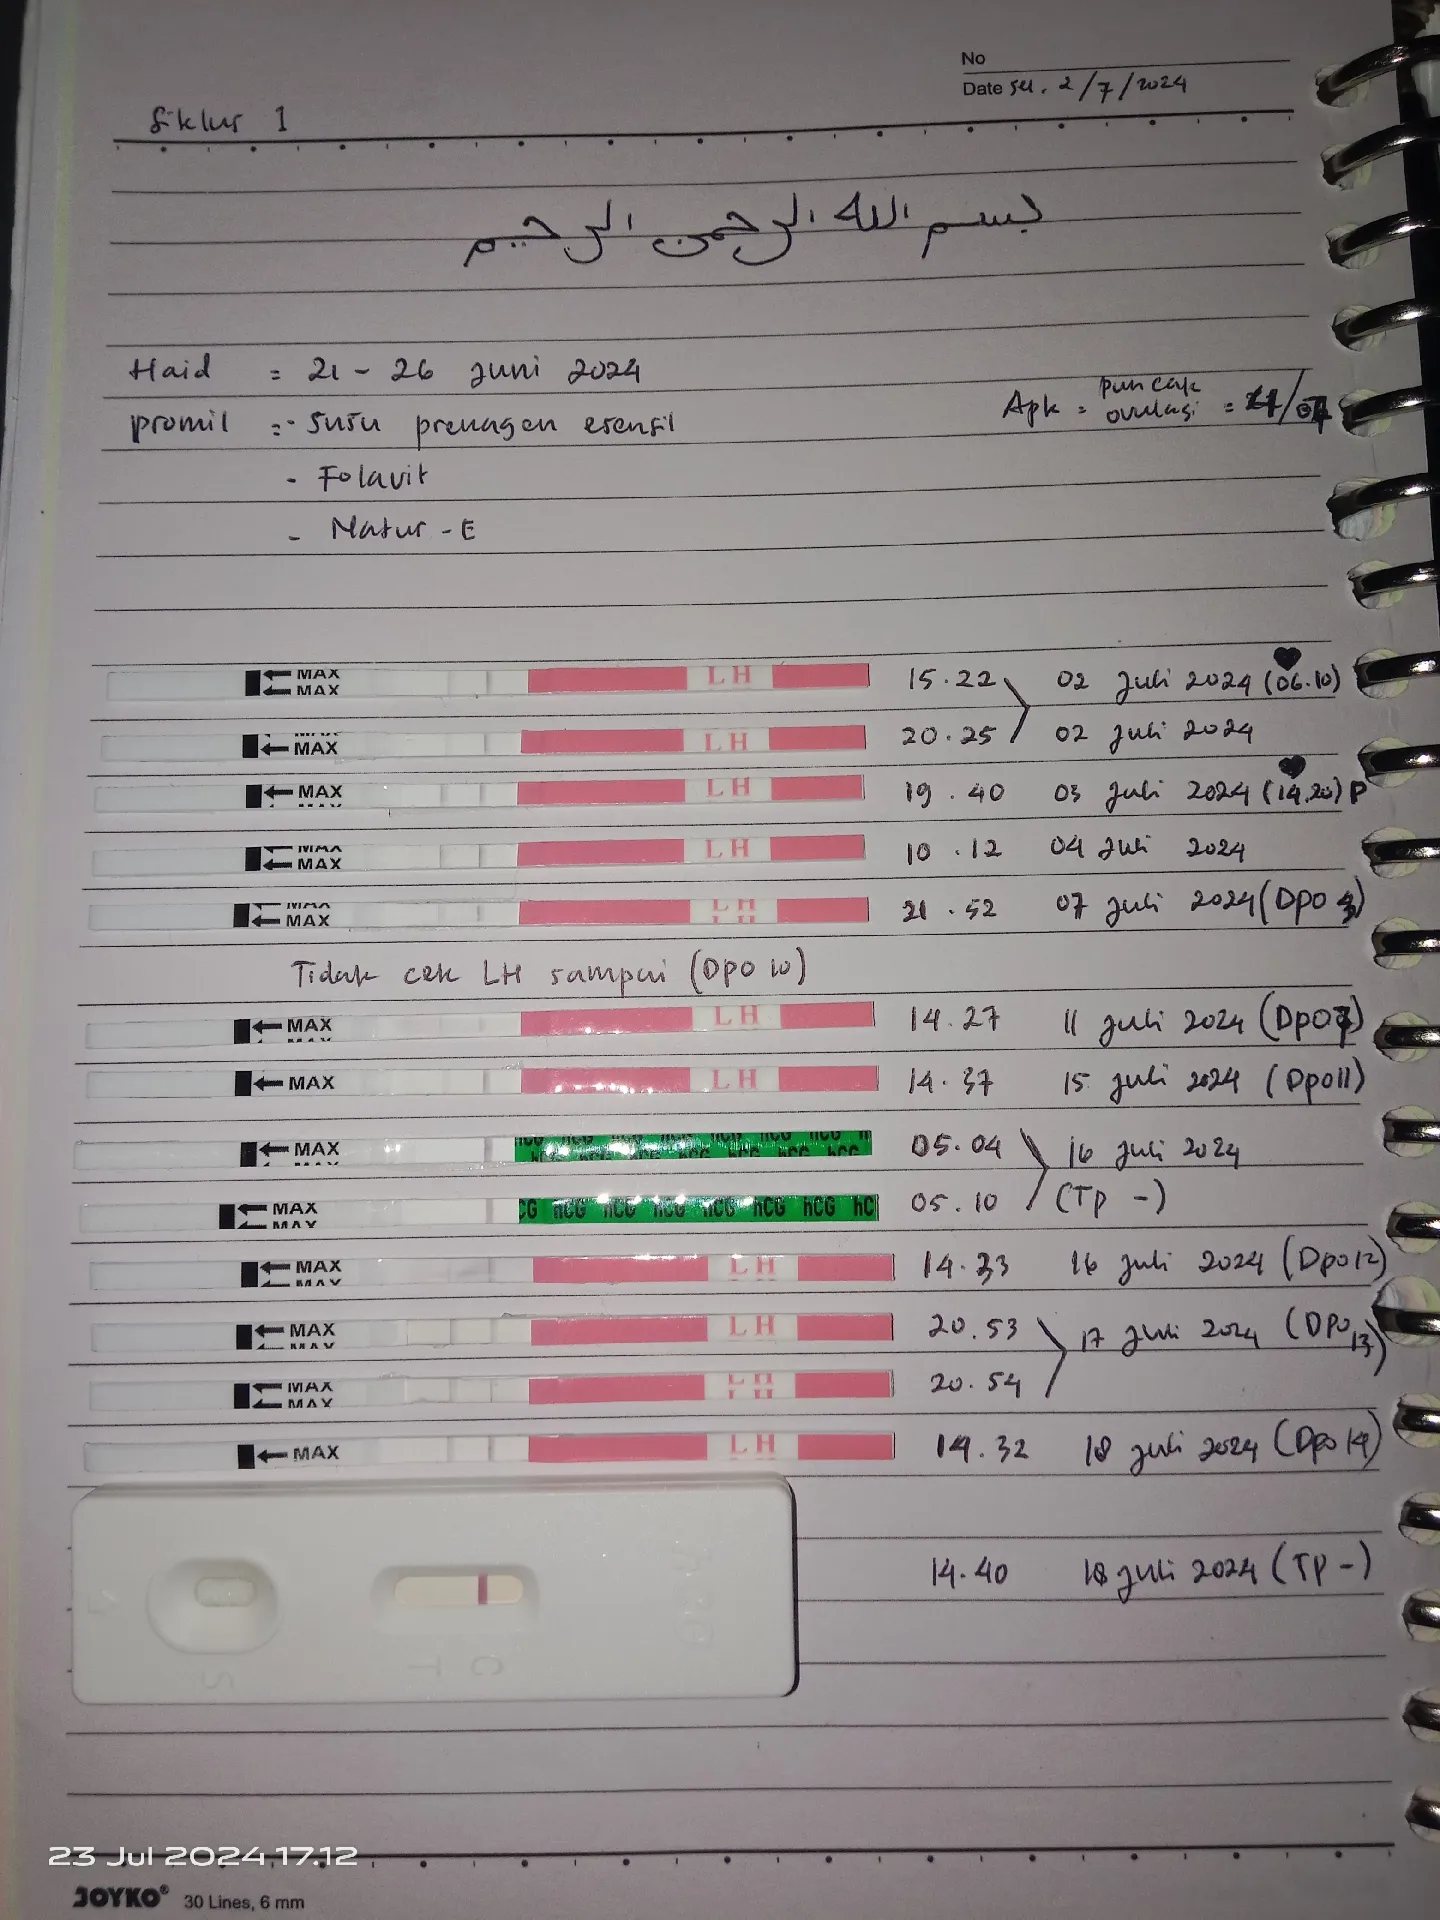 No
Date Sel. 2/7/2024
Siklus 1
بسم الله الرحمن الرحيم
Haid = 21 - 26 Juni 2024
promil = - susu prenagen esensil
Apk = puncak ovulasi =
- Folavit
- Natur - E
MAX MAX LH 15.22 02 Juli 2024 (06.10)
MAX LH 20.25 02 Juli 2024
MAX LH 19.40 03 Juli 2024 (14.20) P
MAX MAX LH 10.12 04 Juli 2024
MAX MAX LH 21.52 07 Juli 2024 (Dpo 3)
Tidak cek LH sampai (Dpo 10)
MAX LH 14.27 11 Juli 2024 (Dpo7)
MAX LH 14.37 15 Juli 2024 (Dpo11)
MAX hCG hCG hCG hCG hCG hCG 05.04 16 Juli 2024
MAX MAX CG hCG hCG hCG hCG hCG hCG hC 05.10 (Tp -)
MAX MAX LH 14.33 16 Juli 2024 (Dpo12)
MAX LH 20.53 17 Juli 2024 (Dpo 13)
MAX MAX LH 20.54
MAX LH 14.32 18 Juli 2024 (Dpo 14)
14.40 18 Juli 2024 (TP -)
S T C
23 Jul 2024 17.12
JOYKO® 30 Lines, 6 mm